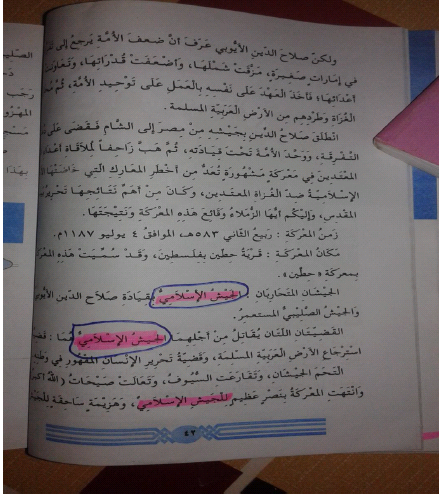 ولكن صلاح الدين الأيوبي عَرَفَ أنَّ ضعفَ الأمَّةِ يَرجعُ إلى
في إماراتٍ صَغيرةٍ، مَزَّقَتْ شَمْلَها، وأضعَفَتْ قُدُرَاتِها، وتَعاوَنَ
أعْدَائِها؛ فأخَذَ العَهْدَ على نَفْسِهِ بِالعَمَلِ عَلَى تَوْحِيدِ الأمَّةِ،
الغُزاةِ وطَرْدِهِم مِنَ الأرْضِ العَرَبِيَّةِ المسلمة.
انْطَلَقَ صَلاحُ الدِّينِ بِجَيْشِهِ مِنْ مِصرَ إلى الشَّامِ فَقَضَى عَلَى
التَّفْرِقَةِ، وَوَحَّدَ الأُمَّةَ تَحْتَ قِيادَتِهِ، ثُمَّ هَبَّ زَاحِفاً لِمُلاقاةِ
المُعْتَدِينَ فِي مَعْرَكَةٍ مَشْهُورَةٍ تُعَدُّ مِنْ أَخْطَرِ المعارِكِ الَّتي خاضَتْها
الإسْلامِيَّةُ ضِدَّ الغُزاةِ المعتَدِينَ، وكَانَ مِنْ أهَمِّ نَتَائِجِهَا تَحْرِيرُ
المَقْدِسِ، وَإِلَيْكُم أيُّها الزُّمَلاءُ وَقَائِعَ هَذِهِ المَعْرَكَةِ وَنَتِيجَتَهَا.
زَمَنُ المَعْرَكَةِ : رَبيعُ الثَّاني ٥٨٣هـ، الموافِقُ ٤ يوليو ١١٨٧م.
مَكَانُ المَعْرَكَةِ : قَرْيَةُ حِطِّينَ بِفِلَسْطِينَ، وَقَدْ سُمِّيَتْ هَذِهِ
بِمَعْرَكَةِ «حِطِّين».
الجَيْشَانِ المُتَحَارِبَانِ : الجَيْشُ الإسْلَامِيُّ بِقِيَادَةِ صَلاحِ الدّينِ
والجَيْشُ الصَّلِيبِيُّ المستعمِرُ.
القَضِيَّتَانِ اللَّتَانِ يُقَاتِلُ مِنْ أَجْلِهِمَا الجَيْشُ الإِسْلَامِيُّ هُمَا :
اسْتِرْجَاعِ الأَرْضِ العَرَبِيَّةِ المُسْلِمَةِ، وَقَضِيَّةُ تَحْرِيرِ الإِنْسَانِ المَقْهُورِ فِي
التَحَمَ الجَيْشَانِ، وَتَقَارَعَتِ السُّيُوفُ، وَتَعَالَتْ صَيْحَاتُ (اللهُ
وَانْتَهَتِ المَعْرَكَةُ بِنَصْرٍ عَظِيمٍ لِلْجَيْشِ الإِسْلَامِيِّ، وَهَزِيمَةٍ سَاحِقَةٍ
٤٢